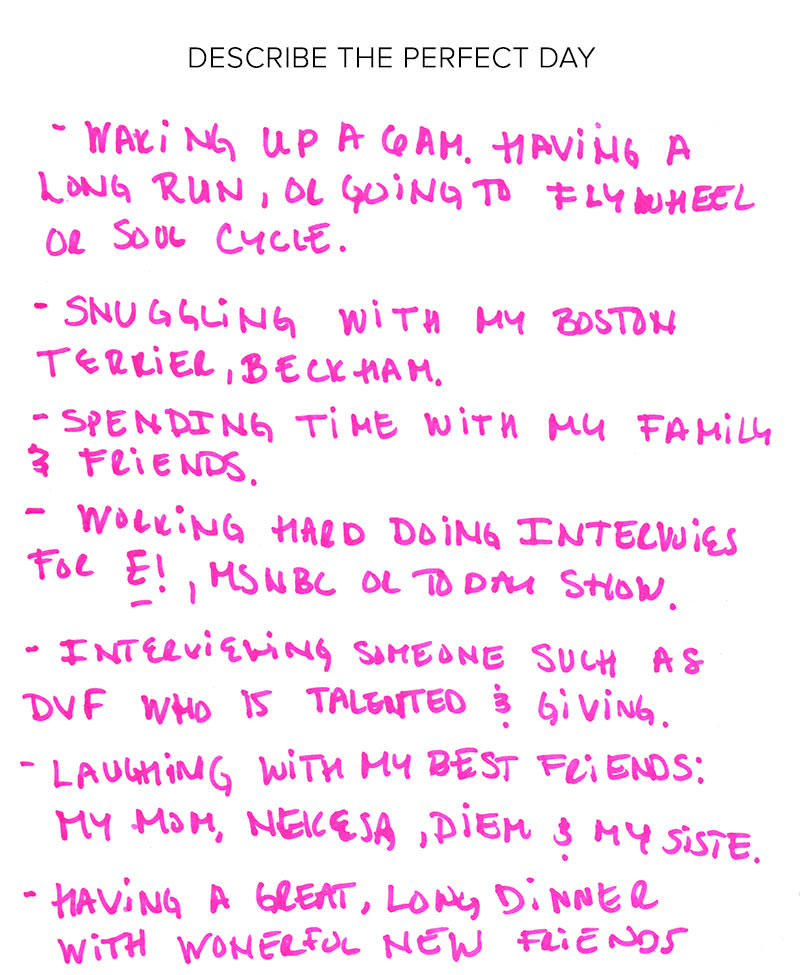 DESCRIBE THE PERFECT DAY
- WAKING UP A 6AM. HAVING A
LONG RUN, OR GOING TO FLYWHEEL
OR SOUL CYCLE.
- SNUGGLING WITH MY BOSTON
TERRIER, BECKHAM.
- SPENDING TIME WITH MY FAMILY
& FRIENDS.
- WORKING HARD DOING INTERVIES
FOR E!, MSNBC OR TODAY SHOW.
- INTERVIEWING SOMEONE SUCH AS
DVF WHO IS TALENTED & GIVING.
- LAUGHING WITH MY BEST FRIENDS:
MY MOM, NEKESA, DIEM & MY SISTE.
- HAVING A GREAT, LONG DINNER
WITH WONERFUL NEW FRIENDS